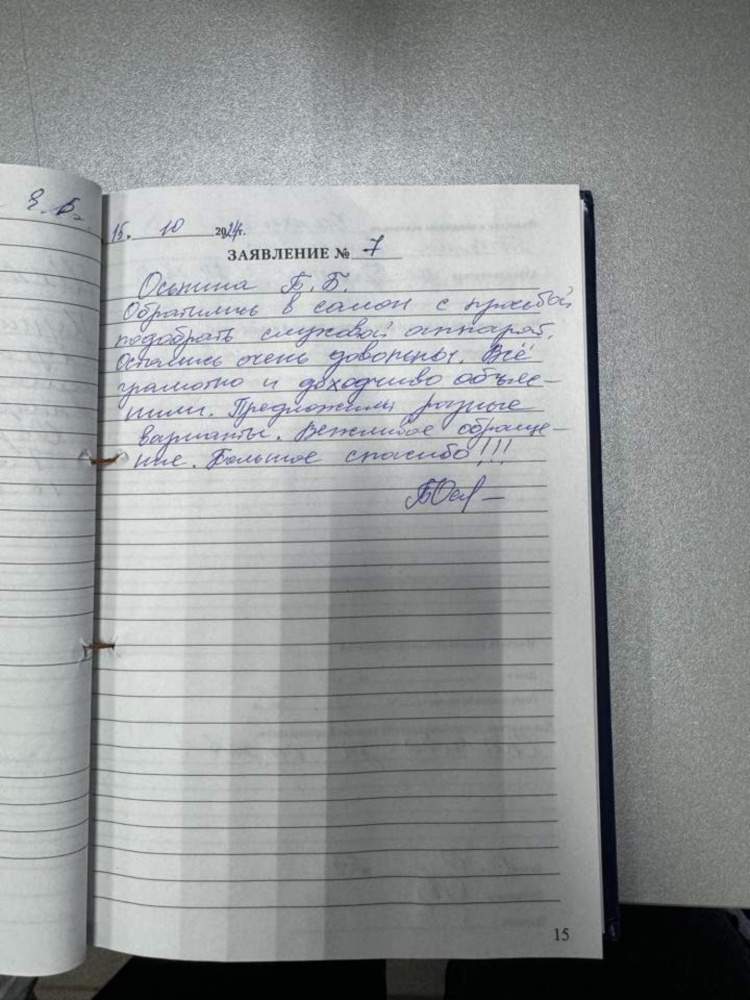 Е. Б.
15. 10 2024г.
ЗАЯВЛЕНИЕ № 7
Осьпина Б. Б.
Обратились в салон с прозьбой
подобрать слуховой аппарат.
Остались очень довольны. Всё
грамотно и доходчиво объяс-
нили. Предложили разные
варианты. Вежливое обраще-
ние. Большое спасибо!!!
15